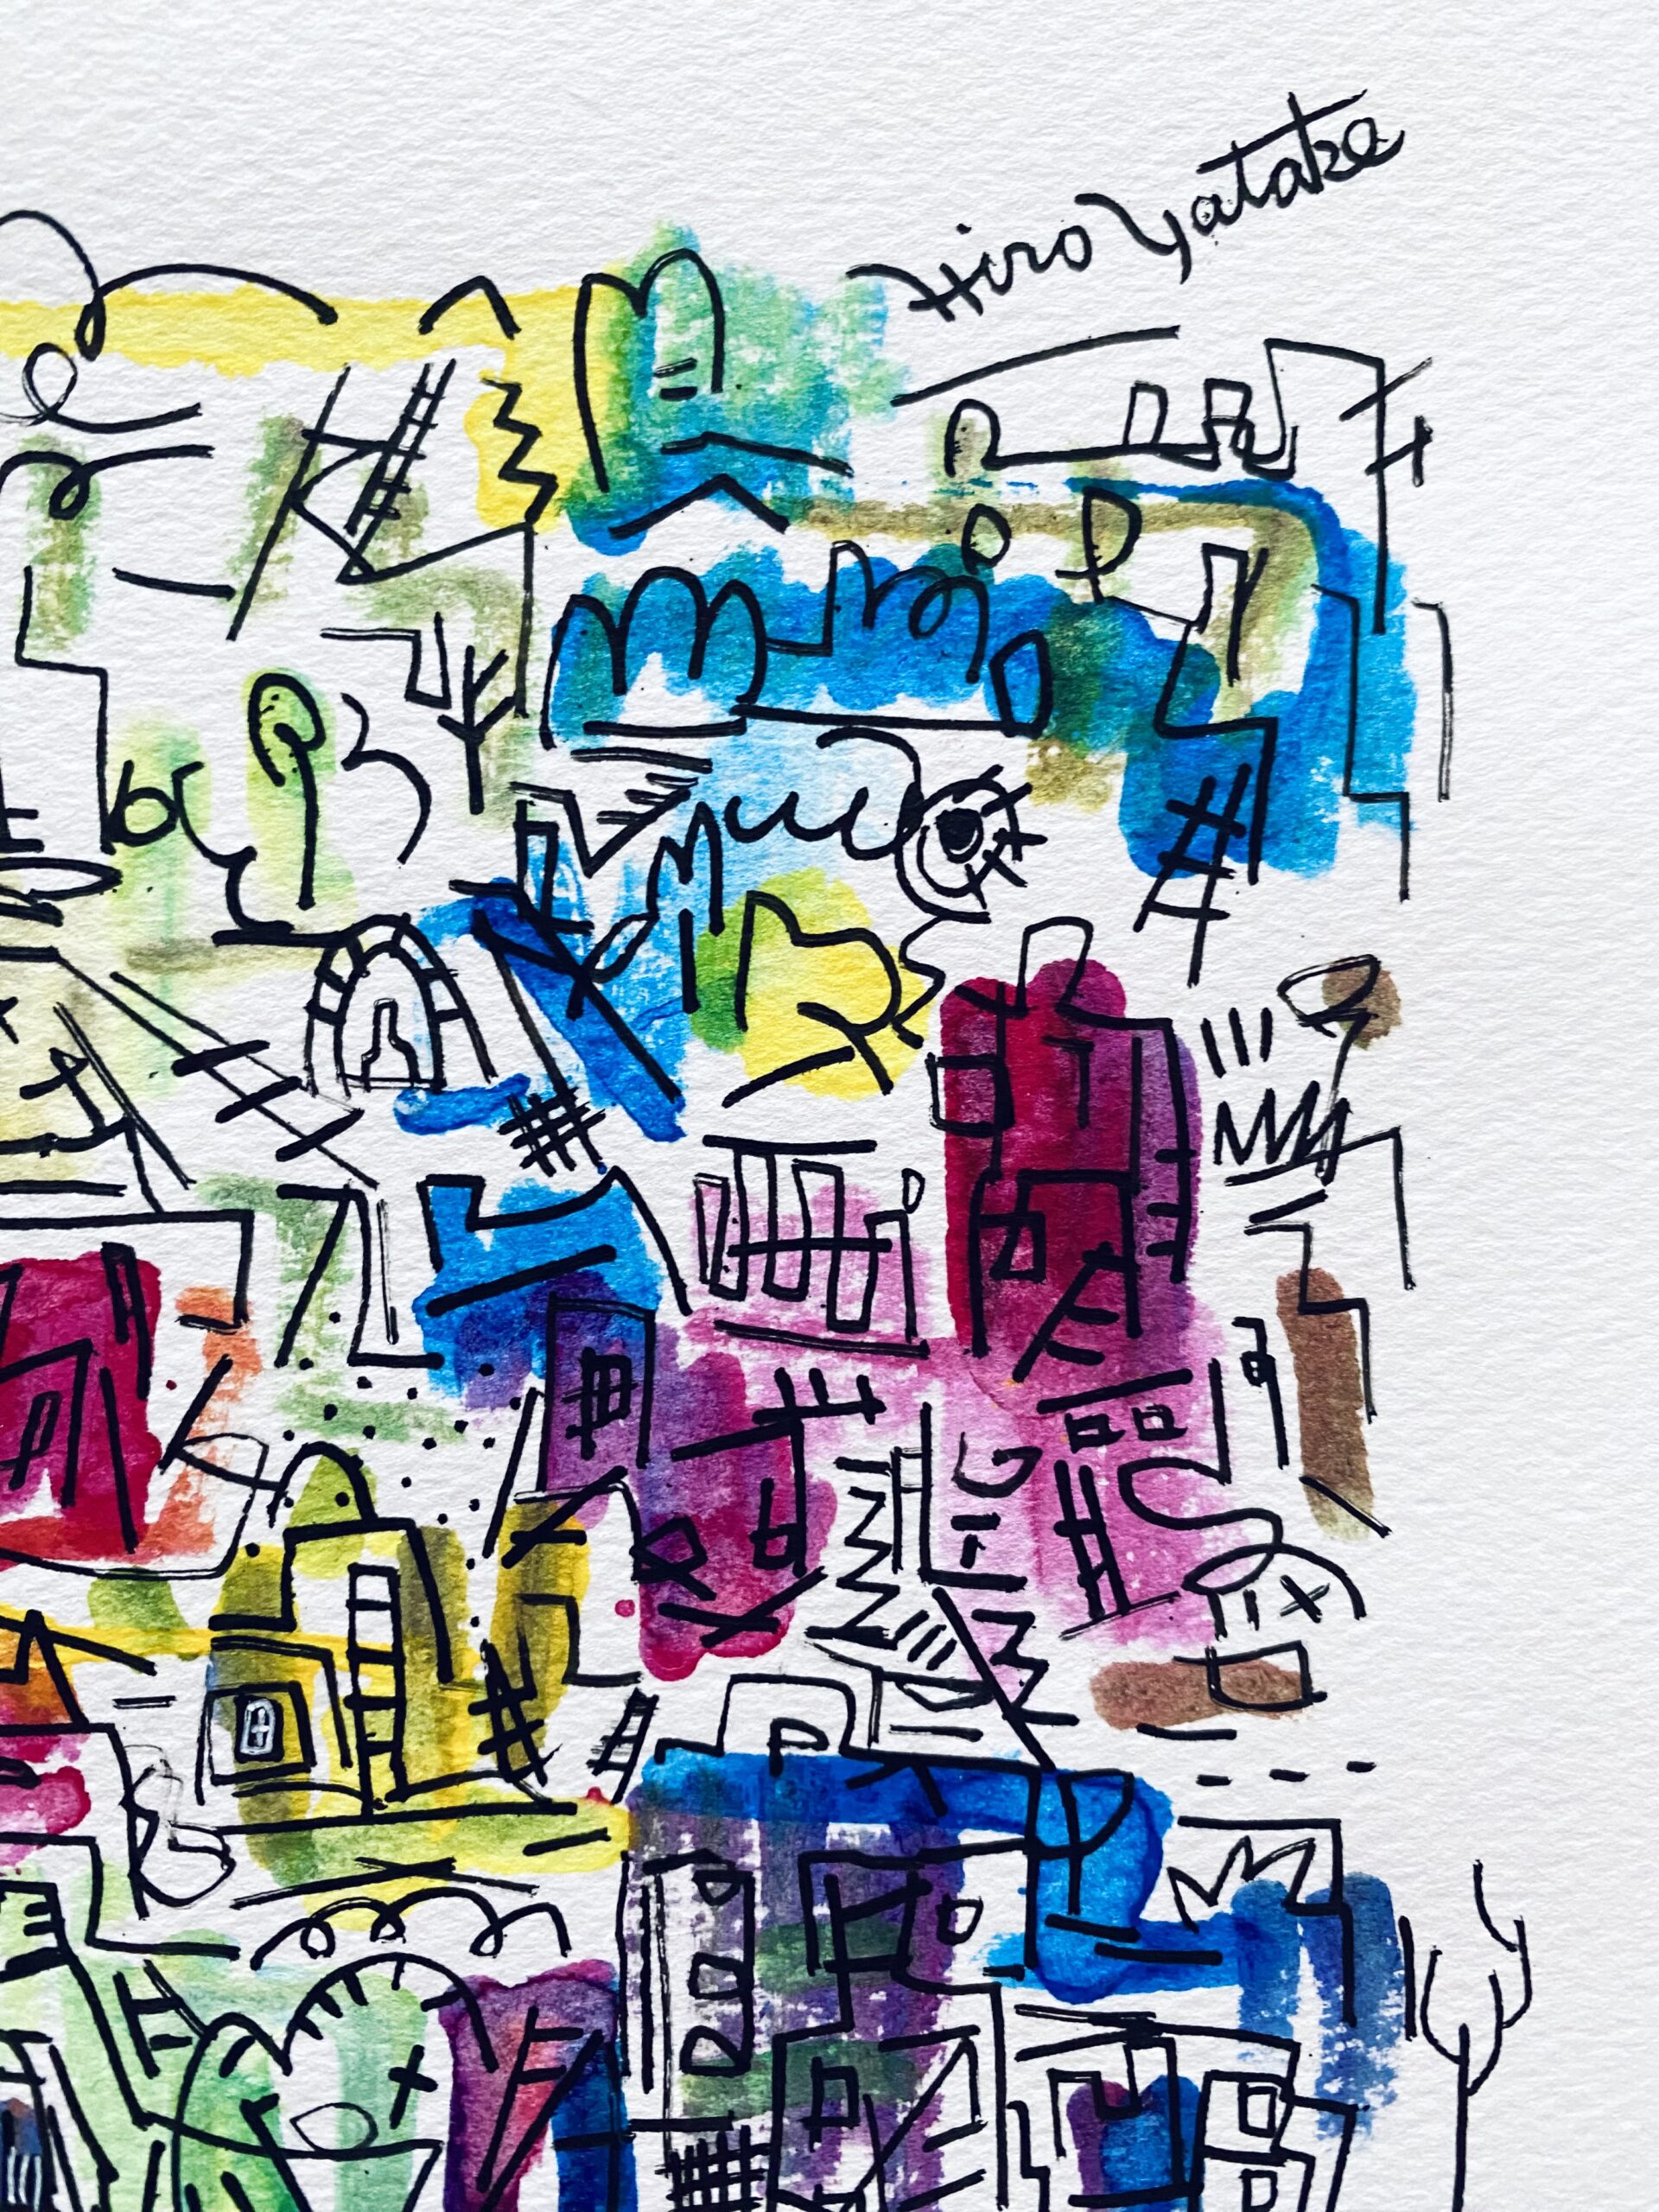 Hiro Yatake